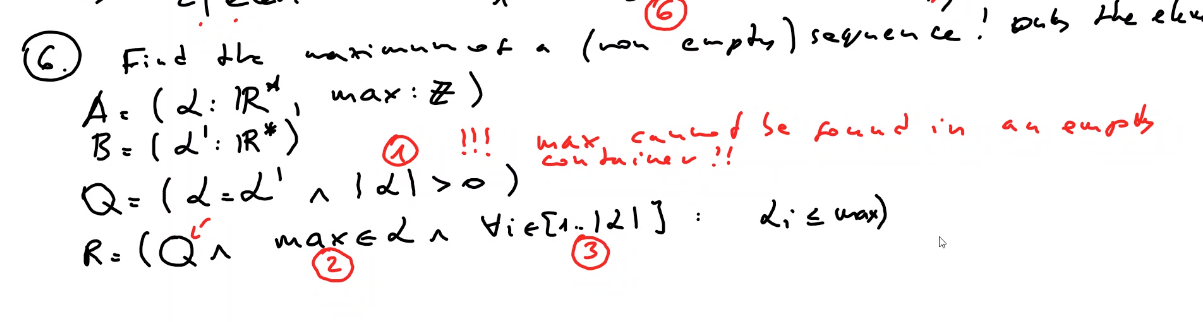 6
6. Find the maximum of a (non empty) sequence! only the
A = (α: ℝ*, max: ℤ)
B = (α': ℝ*)
1 !!! max cannot be found in an empty container!!
Q = (α = α' ∧ |α| > 0)
R = (Q ∧ max ∈ α ∧ ∀i∈[1..|α|] : αᵢ ≤ max)
2 3